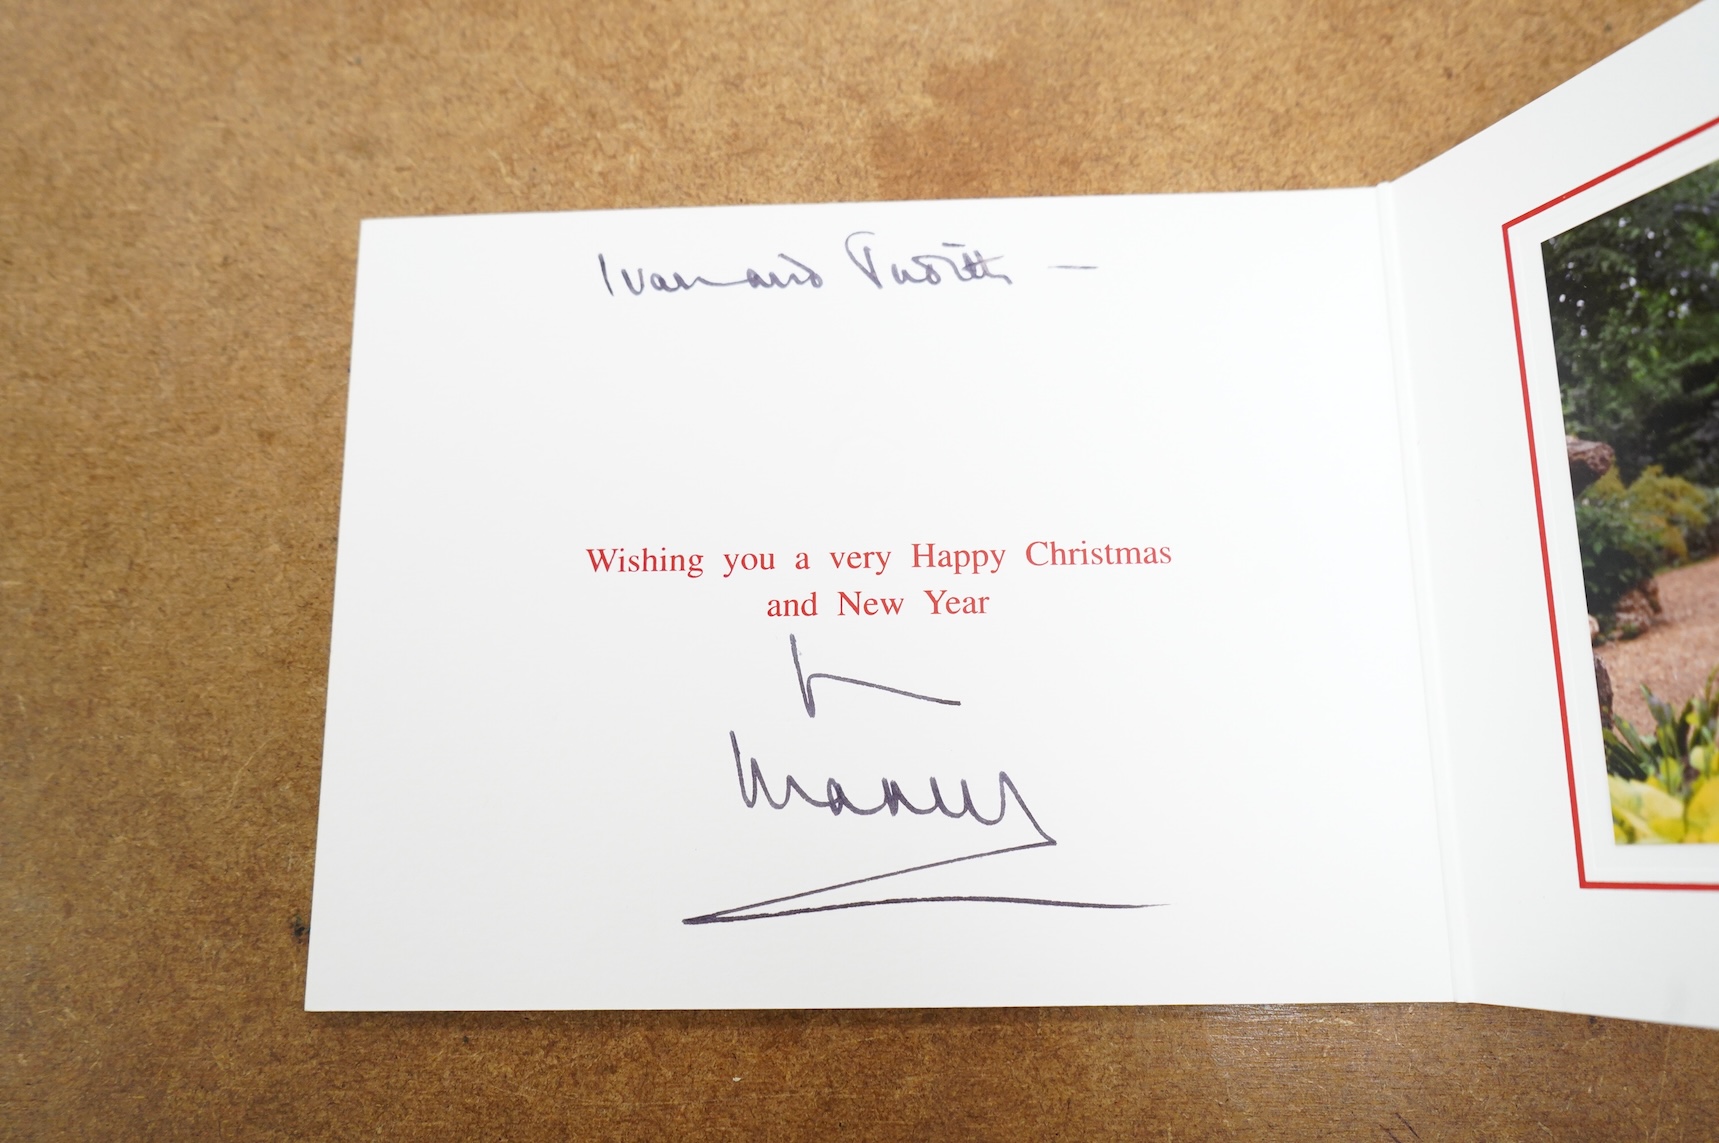 Ivan and Judith —
Wishing you a very Happy Christmas
and New Year
Charles